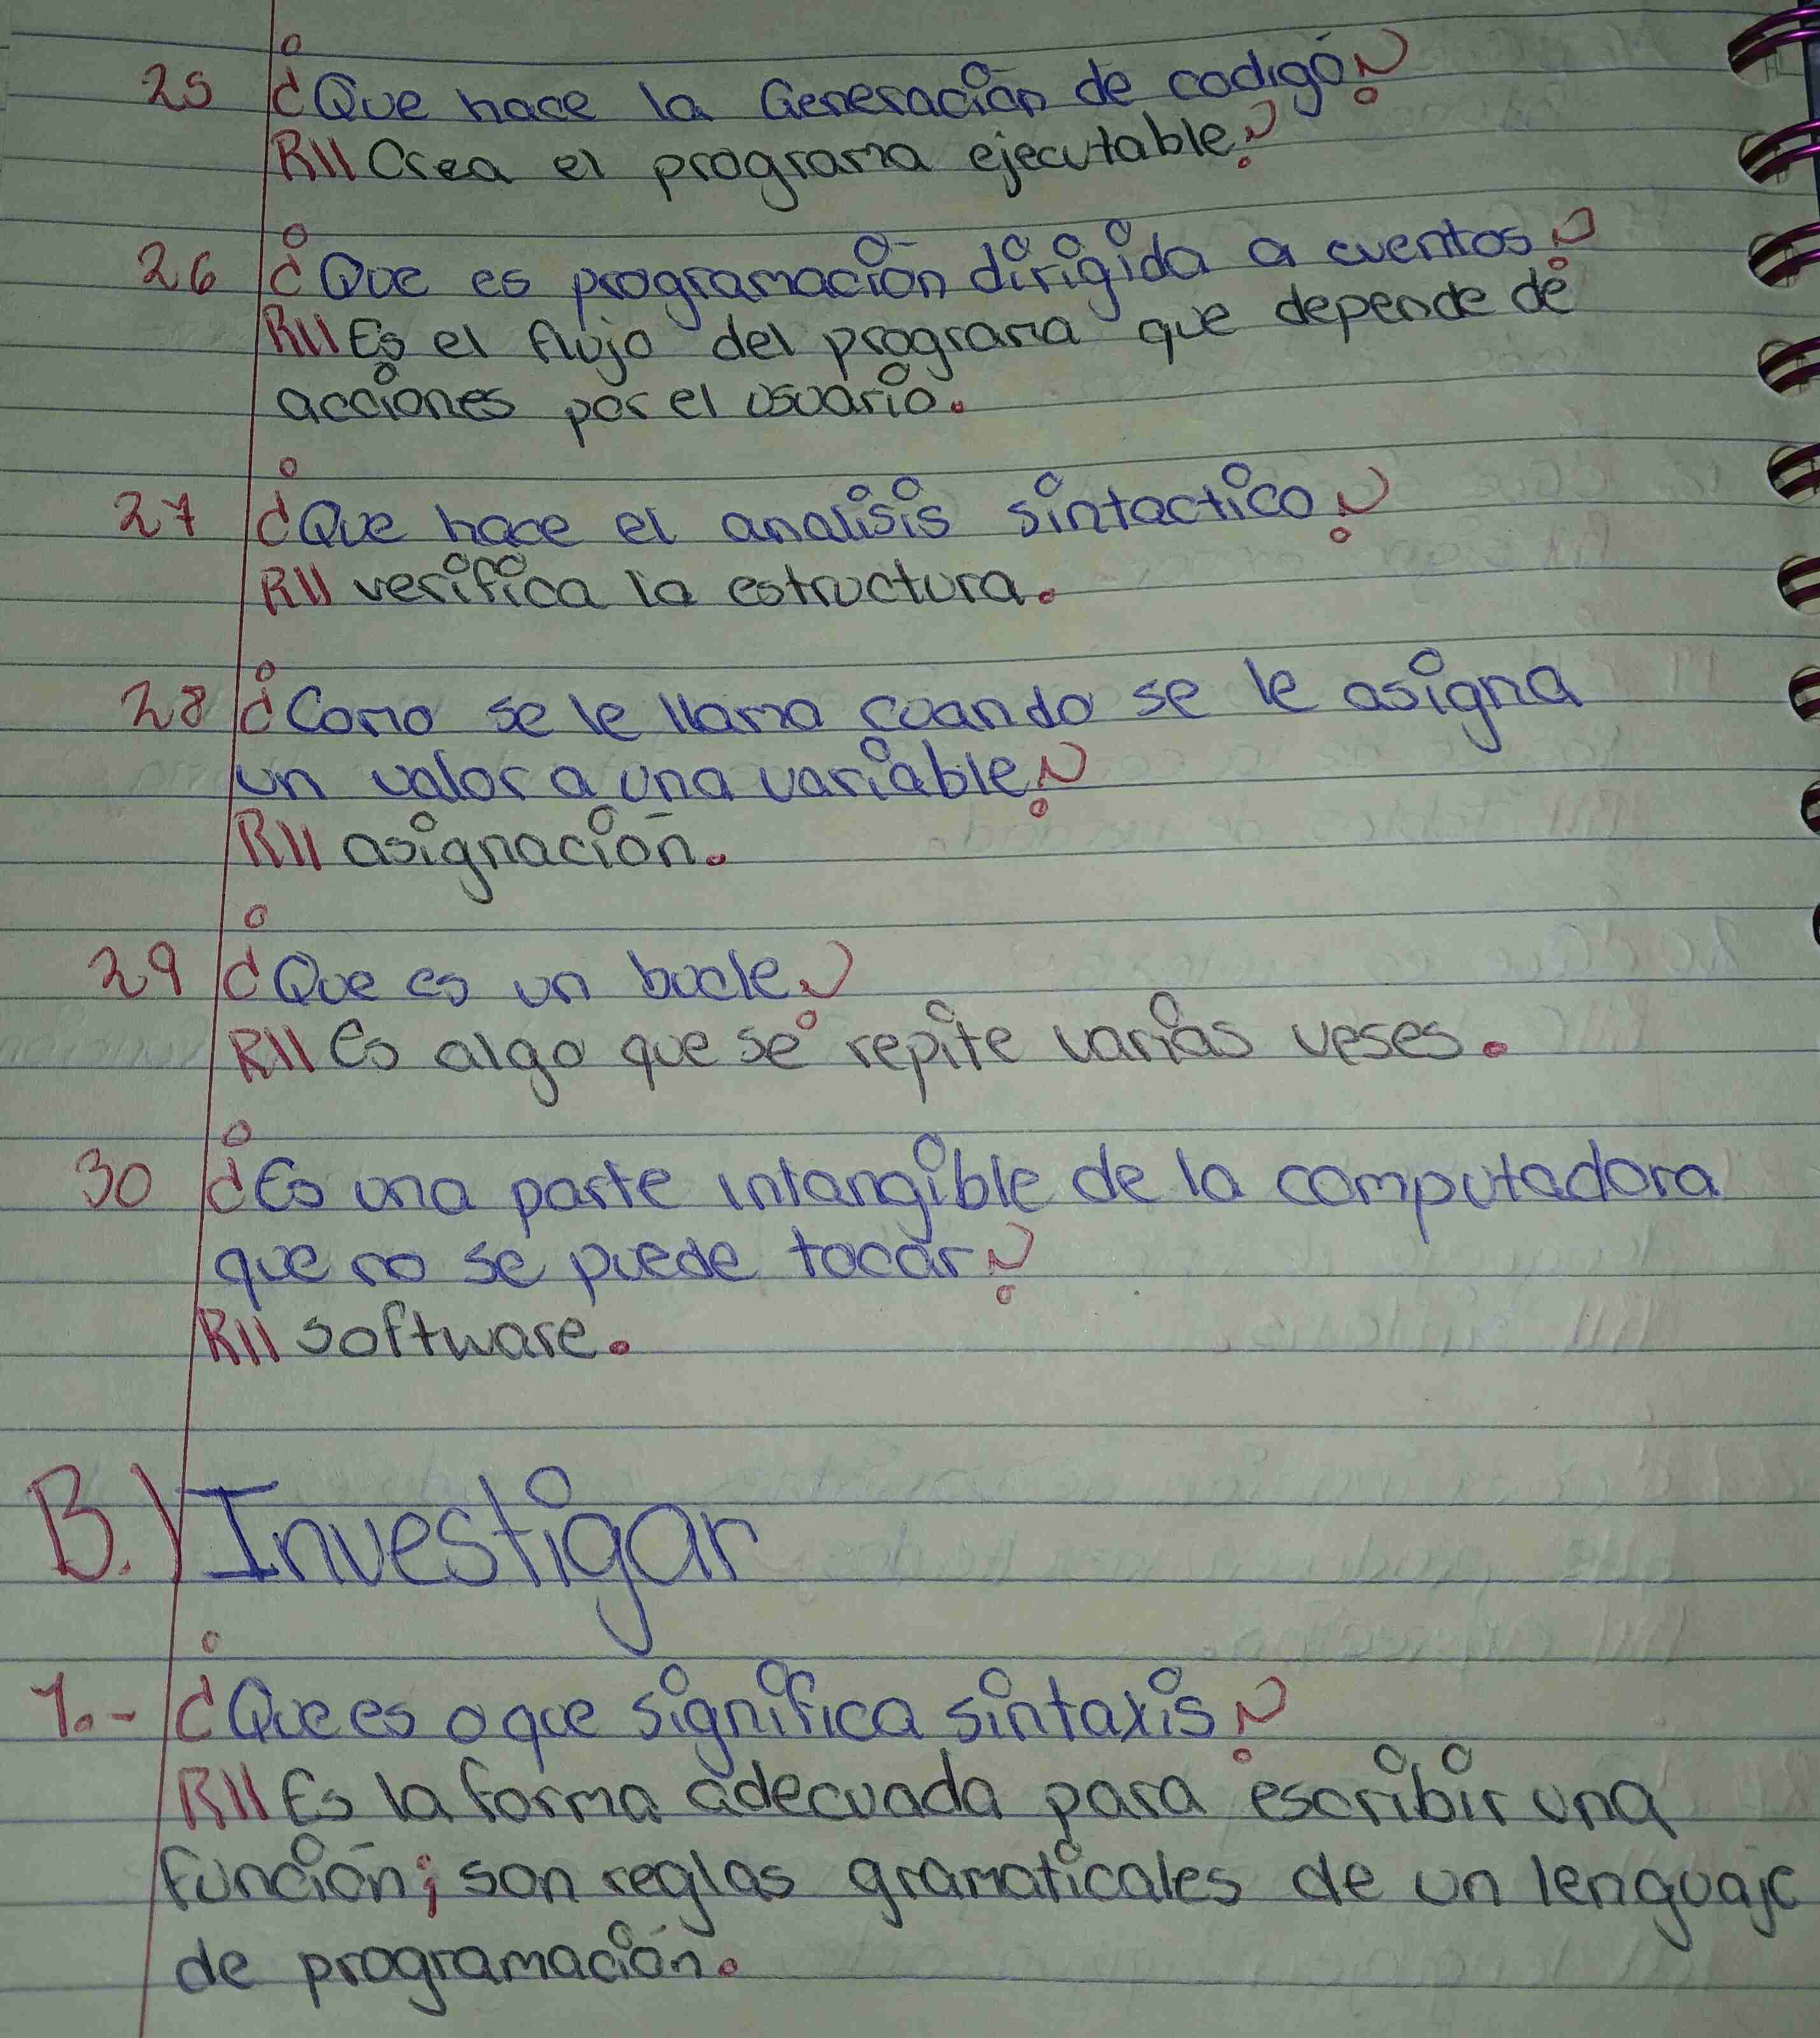 25 ¿Que hace la Generación de codigo?
R// Crea el programa ejecutable?
26 ¿Que es programación dirigida a eventos?
R// Es el flujo del programa que depende de
acciones por el usuario.
27 ¿Que hace el analisis sintactico?
R// verifica la estructura.
28 ¿Como se le llama cuando se le asigna
un valor a una variable?
R// asignación.
29 ¿Que es un bucle?
R// Es algo que se repite varias veses.
30 ¿Es una parte intangible de la computadora
que no se puede tocar?
R// software.
B.) Investigar
1.- ¿Que es o que significa sintaxis?
R// Es la forma adecuada para escribir una
función; son reglas gramaticales de un lenguaje
de programación.